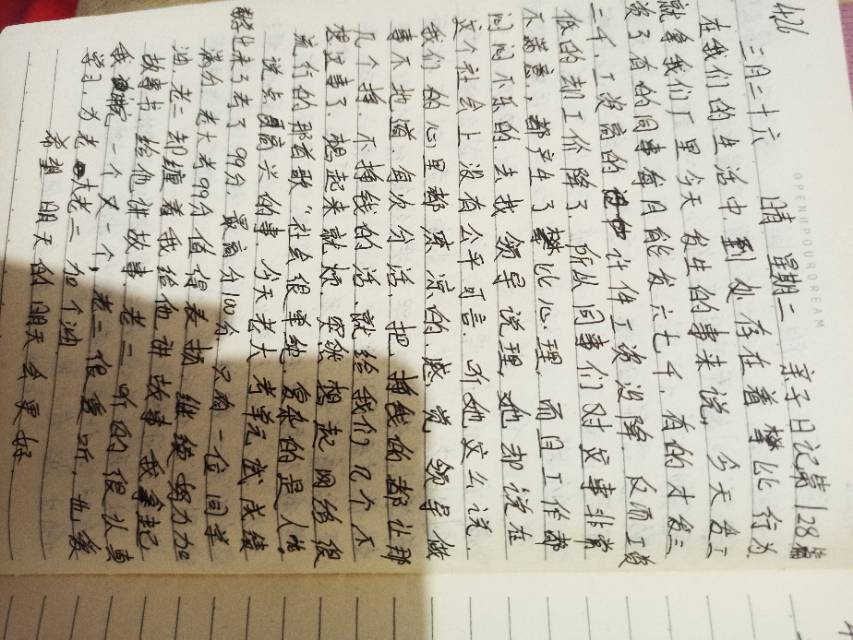 426
OPENUPYOURDREAM
三月二十六 晴 星期二 亲子日记第128篇
在我们的生活中到处存在着攀比行为
就拿我们厂里今天发生的事来说, 今天发了
资了有的同事每月能发六七千,有的才发三
二千,工资高的计件工资没降,反而工资
低的却工价降了,所以同事们对这事非常
不满意,都产生了攀比心理,而且工作都
闷闷不乐的去找领导说理,她却说在
这个社会上没有公平可言,听她这么说,
我们的心里都凉凉的感觉,领导做
事不地道,每次分活,把挣钱的都让那
几个挣,不挣钱的活,就给我们几个不
找事了,想起来就烦,突然想起网络很
流行的那首歌"社会很单纯,复杂的是人"
说点高兴的事,今天老大考单元试成绩
出来了考了99分,最高分100分,只有一位同学
满分,老大考99分值得表扬,继续努力加
油,老二却缠着我给他讲故事,我拿起
故事书,给他讲故事,老二听的很认真
我讲完一个又一个,老二很爱听,也爱
学习,为老大老二加个油
希望明天的明天会更好